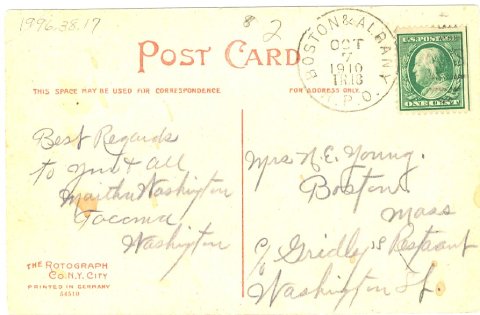 1996.38.17
8 2
POST CARD
BOSTON & ALBANY
OCT
7
1910
R.P.O.
U.S. POSTAGE
ONE CENT
THIS SPACE MAY BE USED FOR CORRESPONDENCE
FOR ADDRESS ONLY.
Best Regards
to you & all
Martha Washington
Tacoma
Washington
Mrs. N. E. Young.
Boston
Mass
c/o Gridley's
Washington St.
THE ROTOGRAPH
CO. N.Y. CITY
PRINTED IN GERMANY